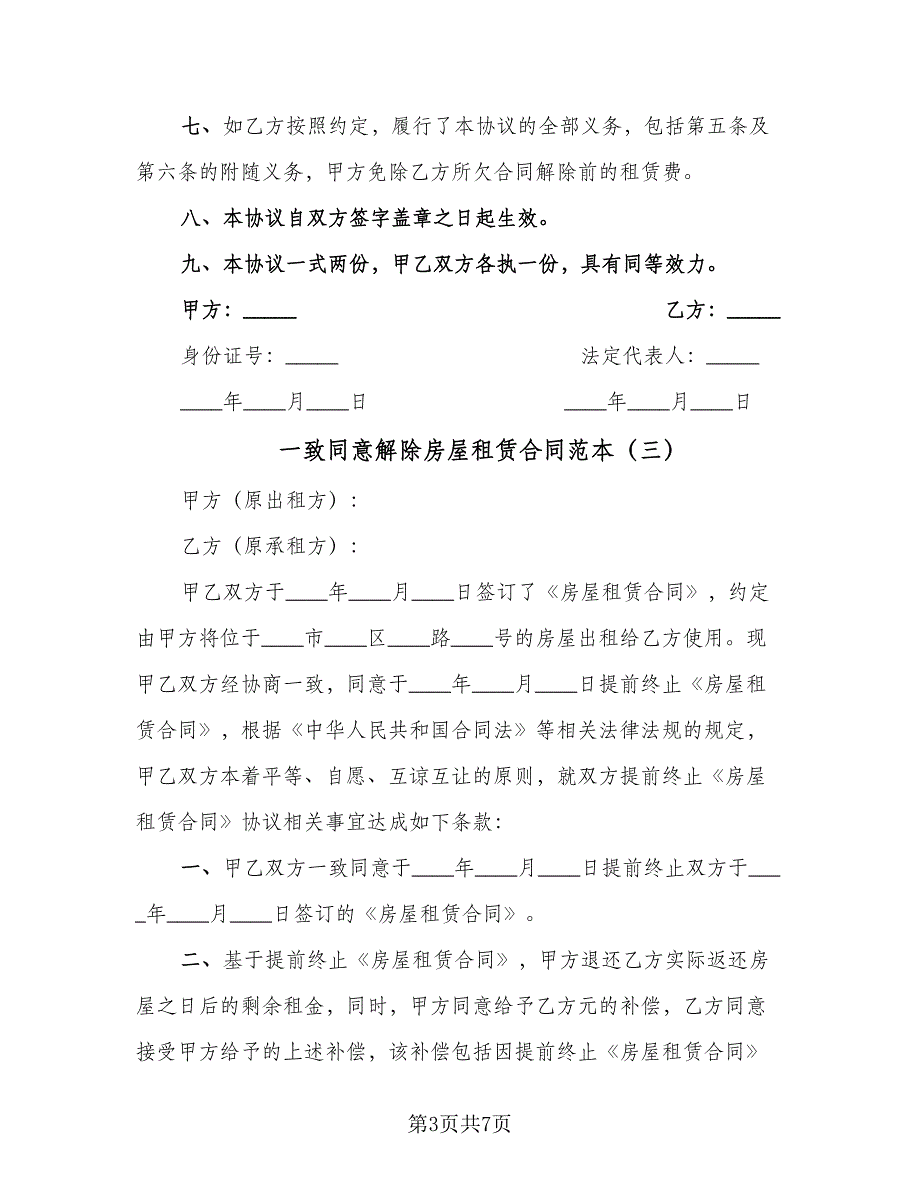 七、如乙方按照约定，履行了本协议的全部义务，包括第五条及
第六条的附随义务，甲方免除乙方所欠合同解除前的租赁费。
八、本协议自双方签字盖章之日起生效。
九、本协议一式两份，甲乙双方各执一份，具有同等效力。
甲方：_____ 乙方：_____
身份证号：_____ 法定代表人：_____
____年____月____日 ____年____月____日
一致同意解除房屋租赁合同范本（三）
甲方（原出租方）：
乙方（原承租方）：
甲乙双方于____年____月____日签订了《房屋租赁合同》，约定
由甲方将位于____市____区____路____号的房屋出租给乙方使用。现
甲乙双方经协商一致，同意于____年____月____日提前终止《房屋租
赁合同》，根据《中华人民共和国合同法》等相关法律法规的规定，
甲乙双方本着平等、自愿、互谅互让的原则，就双方提前终止《房屋
租赁合同》协议相关事宜达成如下条款：
一、甲乙双方一致同意于____年____月____日提前终止双方于___
_年____月____日签订的《房屋租赁合同》。
二、基于提前终止《房屋租赁合同》，甲方退还乙方实际返还房
屋之日后的剩余租金，同时，甲方同意给予乙方元的补偿，乙方同意
接受甲方给予的上述补偿，该补偿包括因提前终止《房屋租赁合同》
第3页共7页